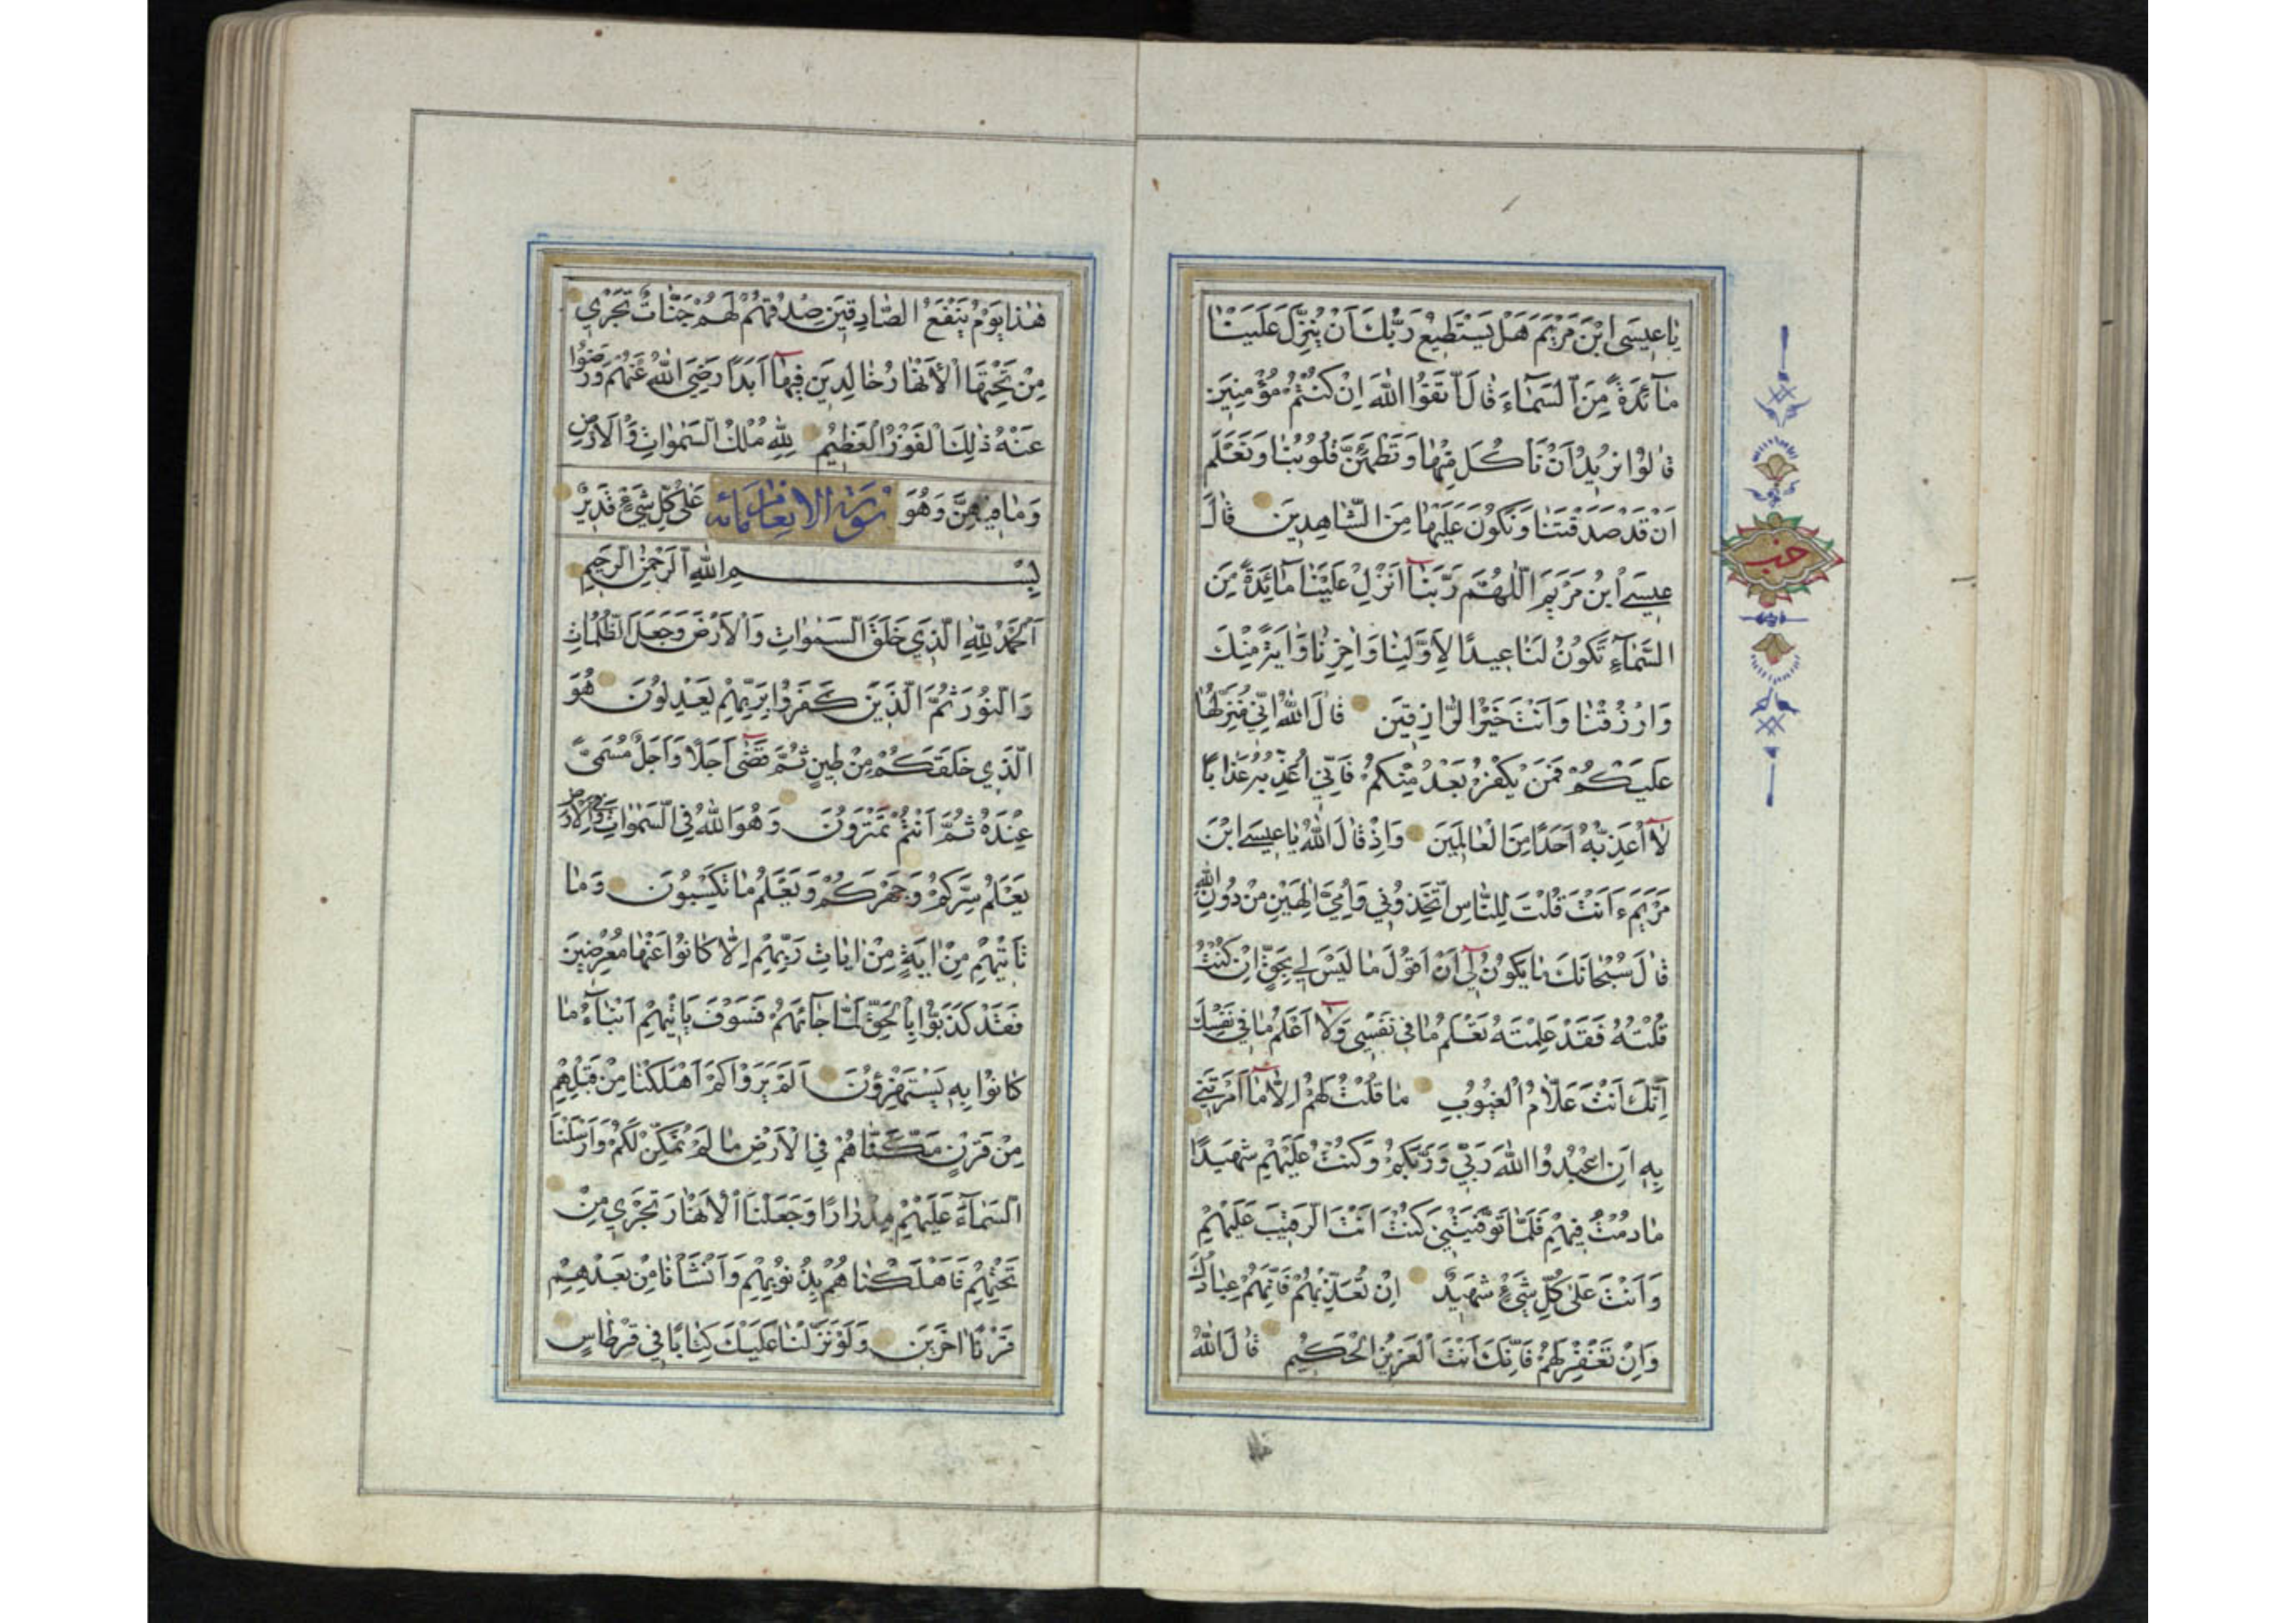 يَاعِيسَى ابْنَ مَرْيَمَ هَلْ يَسْتَطِيعُ رَبُّكَ اَنْ يُنَزِّلَ عَلَيْنَا
مَآئِدَةً مِنَ السَّمَآءِ قَالَ اتَّقُوا اللّٰهَ اِنْ كُنْتُمْ مُؤْمِنِينَ
قَالُوا نُرِيدُ اَنْ نَأْكُلَ مِنْهَا وَتَطْمَئِنَّ قُلُوبُنَا وَنَعْلَمَ
اَنْ قَدْ صَدَقْتَنَا وَنَكُونَ عَلَيْهَا مِنَ الشَّاهِدِينَ قَالَ
عِيسَى ابْنُ مَرْيَمَ اللّٰهُمَّ رَبَّنَآ اَنْزِلْ عَلَيْنَا مَآئِدَةً مِنَ
السَّمَآءِ تَكُونُ لَنَا عِيدًا لِاَوَّلِنَا وَاٰخِرِنَا وَاٰيَةً مِنْكَ
وَارْزُقْنَا وَاَنْتَ خَيْرُ الرَّازِقِينَ قَالَ اللّٰهُ اِنِّي مُنَزِّلُهَا
عَلَيْكُمْ فَمَنْ يَكْفُرْ بَعْدُ مِنْكُمْ فَاِنِّي اُعَذِّبُهُ عَذَابًا
لَآ اُعَذِّبُهُ اَحَدًا مِنَ الْعَالَمِينَ وَاِذْ قَالَ اللّٰهُ يَاعِيسَى ابْنَ
مَرْيَمَ ءَاَنْتَ قُلْتَ لِلنَّاسِ اتَّخِذُونِي وَاُمِّيَ اِلٰهَيْنِ مِنْ دُونِ اللّٰهِ
قَالَ سُبْحَانَكَ مَا يَكُونُ لِيٓ اَنْ اَقُولَ مَا لَيْسَ لِي بِحَقٍّ اِنْ كُنْتُ
قُلْتُهُ فَقَدْ عَلِمْتَهُ تَعْلَمُ مَا فِي نَفْسِي وَلَآ اَعْلَمُ مَا فِي نَفْسِكَ
اِنَّكَ اَنْتَ عَلَّامُ الْغُيُوبِ مَا قُلْتُ لَهُمْ اِلَّا مَآ اَمَرْتَنِي
بِهِ اَنِ اعْبُدُوا اللّٰهَ رَبِّي وَرَبَّكُمْ وَكُنْتُ عَلَيْهِمْ شَهِيدًا
مَا دُمْتُ فِيهِمْ فَلَمَّا تَوَفَّيْتَنِي كُنْتَ اَنْتَ الرَّقِيبَ عَلَيْهِمْ
وَاَنْتَ عَلَى كُلِّ شَيْءٍ شَهِيدٌ اِنْ تُعَذِّبْهُمْ فَاِنَّهُمْ عِبَادُكَ
وَاِنْ تَغْفِرْ لَهُمْ فَاِنَّكَ اَنْتَ الْعَزِيزُ الْحَكِيمُ قَالَ اللّٰهُ
حزب
هٰذَا يَوْمُ يَنْفَعُ الصَّادِقِينَ صِدْقُهُمْ لَهُمْ جَنَّاتٌ تَجْرِي
مِنْ تَحْتِهَا الْاَنْهَارُ خَالِدِينَ فِيهَآ اَبَدًا رَضِيَ اللّٰهُ عَنْهُمْ وَرَضُوا
عَنْهُ ذٰلِكَ الْفَوْزُ الْعَظِيمُ لِلّٰهِ مُلْكُ السَّمٰوَاتِ وَالْاَرْضِ
وَمَا فِيهِنَّ وَهُوَ سورة الانعام مائه عَلَى كُلِّ شَيْءٍ قَدِيرٌ
بِسْمِ اللّٰهِ الرَّحْمٰنِ الرَّحِيمِ
اَلْحَمْدُ لِلّٰهِ الَّذِي خَلَقَ السَّمٰوَاتِ وَالْاَرْضَ وَجَعَلَ الظُّلُمَاتِ
وَالنُّورَ ثُمَّ الَّذِينَ كَفَرُوا بِرَبِّهِمْ يَعْدِلُونَ هُوَ
الَّذِي خَلَقَكُمْ مِنْ طِينٍ ثُمَّ قَضٰٓى اَجَلًا وَاَجَلٌ مُسَمًّى
عِنْدَهُ ثُمَّ اَنْتُمْ تَمْتَرُونَ وَهُوَ اللّٰهُ فِي السَّمٰوَاتِ وَفِي الْاَرْضِ
يَعْلَمُ سِرَّكُمْ وَجَهْرَكُمْ وَيَعْلَمُ مَا تَكْسِبُونَ وَمَا
تَأْتِيهِمْ مِنْ اٰيَةٍ مِنْ اٰيَاتِ رَبِّهِمْ اِلَّا كَانُوا عَنْهَا مُعْرِضِينَ
فَقَدْ كَذَّبُوا بِالْحَقِّ لَمَّا جَآءَهُمْ فَسَوْفَ يَأْتِيهِمْ اَنْبَآءُ مَا
كَانُوا بِهِ يَسْتَهْزِؤُنَ اَلَمْ يَرَوْا كَمْ اَهْلَكْنَا مِنْ قَبْلِهِمْ
مِنْ قَرْنٍ مَكَّنَّاهُمْ فِي الْاَرْضِ مَا لَمْ نُمَكِّنْ لَكُمْ وَاَرْسَلْنَا
السَّمَآءَ عَلَيْهِمْ مِدْرَارًا وَجَعَلْنَا الْاَنْهَارَ تَجْرِي مِنْ
تَحْتِهِمْ فَاَهْلَكْنَاهُمْ بِذُنُوبِهِمْ وَاَنْشَأْنَا مِنْ بَعْدِهِمْ
قَرْنًا اٰخَرِينَ وَلَوْ نَزَّلْنَا عَلَيْكَ كِتَابًا فِي قِرْطَاسٍ